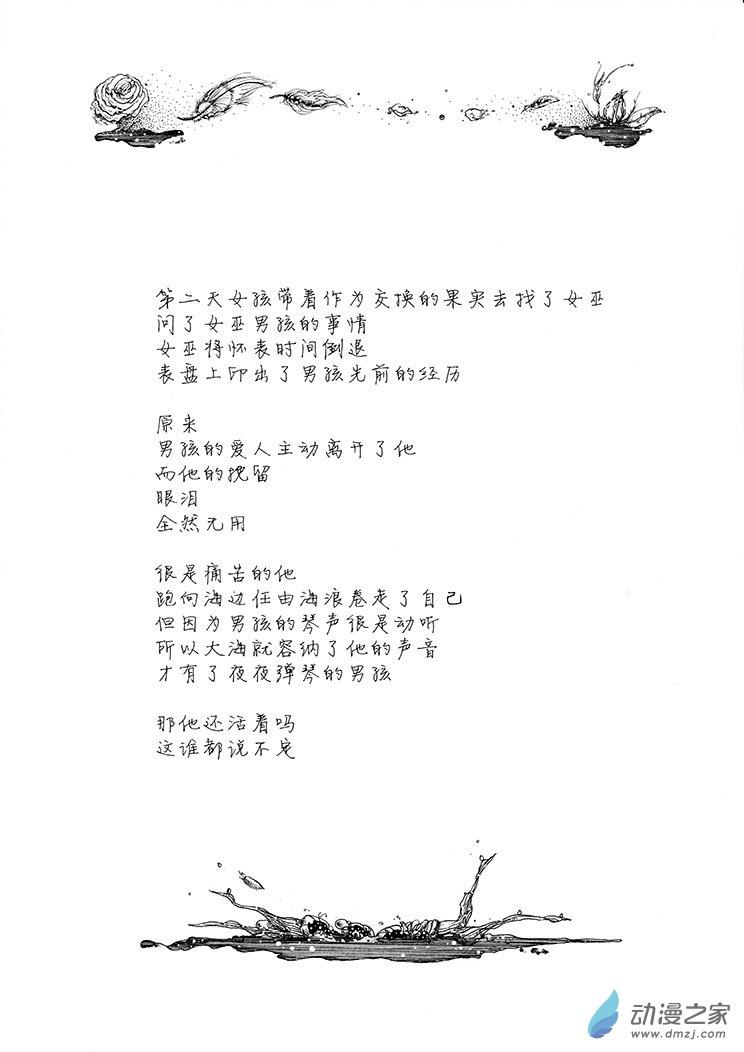 第二天女孩带着作为交换的果实去找了女巫
问了女巫男孩的事情
女巫将怀表时间倒退
表盘上印出了男孩先前的经历
原来
男孩的爱人主动离开了他
而他的挽留
眼泪
全然无用
很是痛苦的他
跑向海边任由海浪卷走了自己
但因为男孩的琴声很是动听
所以大海就容纳了他的声音
才有了夜夜弹琴的男孩
那他还活着吗
这谁都说不定
动漫之家
www.dmzj.com